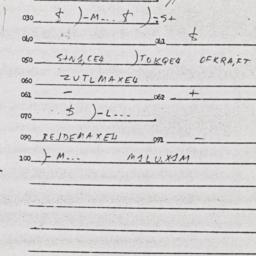 030 $ )-M... $ )-S+
040 041 $
050 S+N1,CE4 )TOKQE4 OFKRA,FT
060 ZUTLMAXE4
061 - 062 +
070 $ )-L...
090 BEJDEMAXE4 091 -
100 )-M... M1LU.X1M